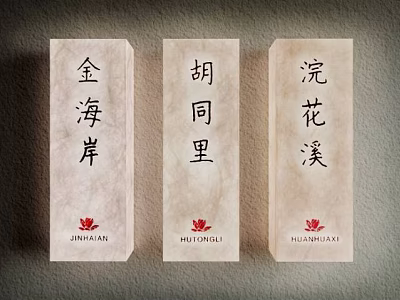 金海岸
JINHAIAN
胡同里
HUTONGLI
浣花溪
HUANHUAXI